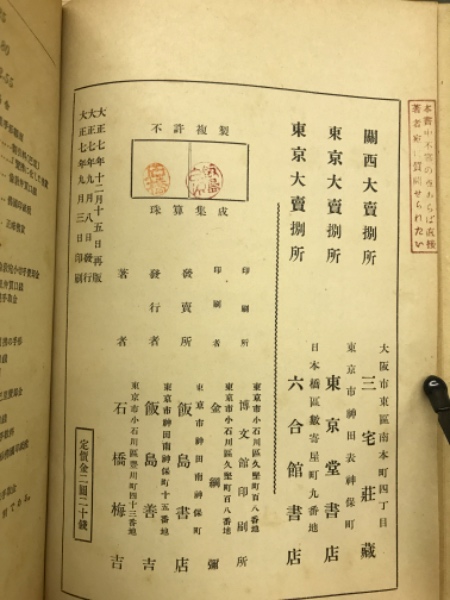 本書中不審の点あらば直接
著者宛 質問せられたい
關西大賣捌所
大阪市東區南本町四丁目
三宅莊藏
東京大賣捌所
東京市神田表神保町
東京堂書店
東京大賣捌所
日本橋區數寄屋町九番地
六合館書店
不許複製
珠算集成
印刷所
東京市小石川區久堅町百八番地
博文館印刷所
印刷者
東京市小石川區久堅町百八番地
金綱彌
發賣所
東京市神田南神保町
飯島書店
發行者
東京市神田南神保町十五番地
飯島善吉
著者
東京市小石川區豐川町四十三番地
石橋梅吉
大正七年十二月十五日再版
大正七年九月八日發行
大正七年九月三日印刷
定價金二圓二十錢